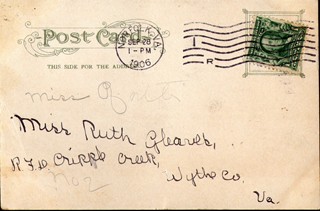 Post Card
THIS SIDE FOR THE ADDRESS
VA.
SEP 28
1-PM
1906
1
R
Miss
Miss Ruth Gleaves,
R.F.D. Cripple Creek,
No 2
Wythe Co.
Va.